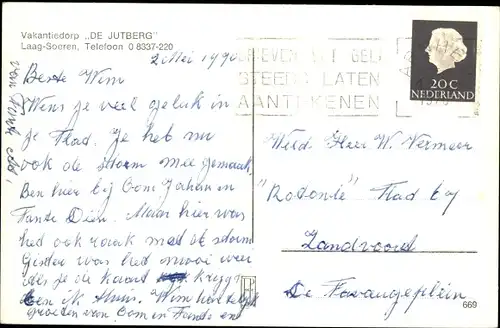 Vakantiedorp „DE JUTBERG”
Laag-Soeren, Telefoon 0 8337-220
2 Mei 1990
Beste Wim
Wens je veel geluk in
je Flad. Je heb nu
ook de storm mee gemaakt
Ben hier bij Oom Johan en
Tante Dien. Maar hier was
het ook raak met de storm
Gister was het mooi weer
als je de kaart krijgt
ben ik thuis. Wim hartelijk
groeten van Oom en Tante en
BRIEVEN MET GELD
STEEDS LATEN
AANTEKENEN
20 C
NEDERLAND
Weld. Heer W. Vermeer
"Rodonte" Flad by
Zandvoord
De Favaugeplein
669